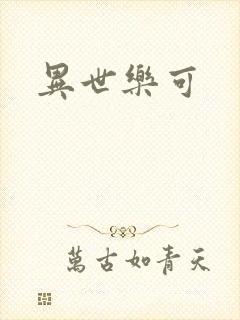 異世樂可
萬古如青天